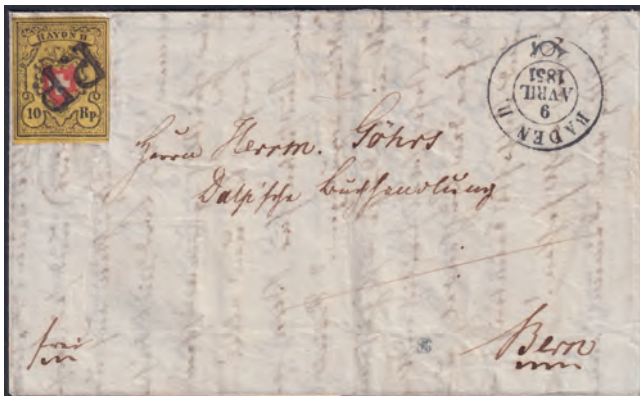 RAYON II
P.P.
10 Rp
BADEN
9
AVRIL
1851
Herrn Herrm. Göhrs
Dalp'sche Buchhandlung
frei
Bern